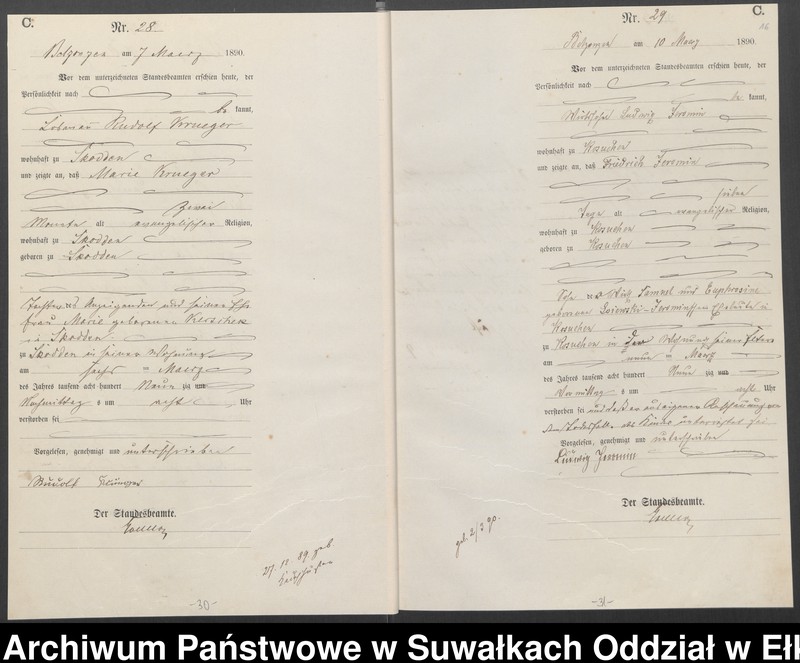 C.
Nr. 28
am 7 Maerz 1890.
Vor dem unterzeichneten Standesbeamten erschien heute, der
Persönlichkeit nach
be kannt,
Rudolf Krueger
wohnhaft zu Skodden
und zeigte an, daß Marie Krueger
Zwei
Monate alt evangelischer Religion,
wohnhaft zu Skodden
geboren zu Skodden
Tochter des Anzeigenden und seiner Ehe
frau Marie geborenen
in Skodden
zu Skodden in seiner Wohnung
am sechs ten Maerz
des Jahres tausend acht hundert Neun zig
Nachmittag s um acht Uhr
verstorben sei
Vorgelesen, genehmigt und unterschrieben
Rudolf Krueger
Der Standesbeamte.
27. 12 89 geb.
-30-
C.
Nr. 29
am 10 Maerz 1890.
Vor dem unterzeichneten Standesbeamten erschien heute, der
Persönlichkeit nach
be kannt,
Ludwig Jeromin
wohnhaft zu Kosuchen
und zeigte an, daß Friedrich Jeromin
sieben
Tage alt evangelischer Religion,
wohnhaft zu Kosuchen
geboren zu Kosuchen
Sohn des Samuel und Euphrosine
geborenen
Kosuchen
zu Kosuchen in der Wohnung seiner Eltern
am neun ten Maerz
des Jahres tausend acht hundert Neun zig
Vormittag s um acht Uhr
verstorben sei und daß er aus eigener
Vorgelesen, genehmigt und unterschrieben
Ludwig Jeromin
Der Standesbeamte.
geb. 2/3 90.
-31-
Archiwum Państwowe w Suwałkach Oddział w Ełk